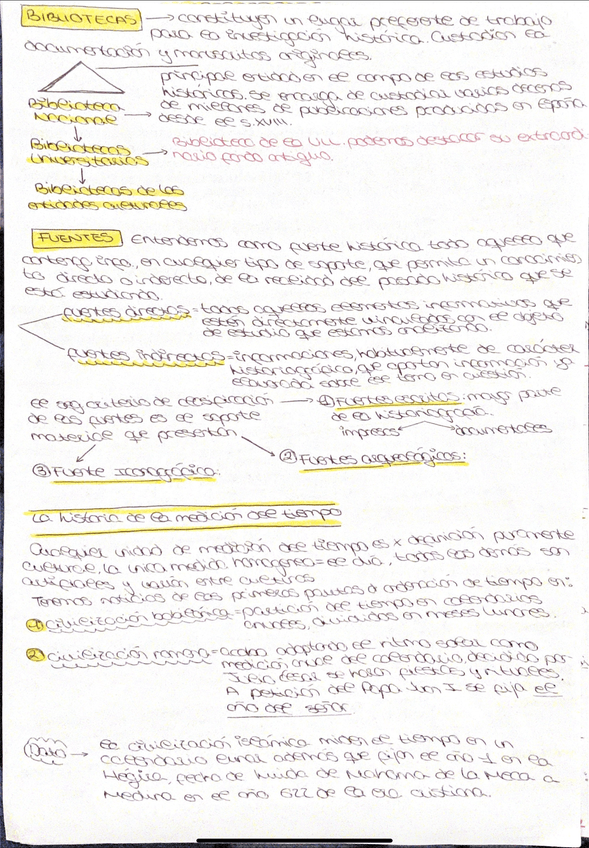 BIBLIOTECAS → constituyen un lugar preferente de trabajo
para la investigación histórica. Custodian la
documentación y manuscritos originales.
principal entidad en el campo de los estudios
históricos. Se encarga de custodiar varias decenas
Biblioteca Nacional → de millones de publicaciones producidas en España
desde el s.XVIII.
Bibliotecas Universitarias → Biblioteca de la ULL. podemos destacar su extraordi
nario fondo antiguo.
Bibliotecas de las
entidades culturales
FUENTES Entendemos como fuente histórica todo aquello que
contenga info, en cualquier tipo de soporte, que permita un conocimien
to directo o indirecto, de la realidad del pasado histórico que se
está estudiando.
fuentes directas = todos aquellos elementos informativos que
están directamente vinculados con el objeto
de estudio que estamos analizando.
fuentes indirectas = informaciones habitualmente de carácter
historiográfico, que aportan información ya
elaborada sobre el tema en cuestión.
el sng criterio de clasificación → ① Fuentes escritas: mayor parte
de las fuentes es el soporte de la historiografía.
material que presentan impresos documentales
③ Fuente Iconográfica: ② Fuentes arqueológicas:
La historia de la medición del tiempo
Cualquier unidad de medición del tiempo es x definición puramente
cultural, la única medida homogénea = el día, todas las demás son
artificiales y varían entre culturas
Tenemos noticias de las primeras pautas d ordenación de tiempo en:
① civilización babilónica = partición del tiempo en calendarios
anuales, divididos en meses lunares.
② civilización romana = acaba adoptando el ritmo solar como
medición anual del calendario, decidido por
Julio César
A petición del Papa Juan I se fija el
año del señor.
Dato → la civilización islámica miden el tiempo en un
calendario lunar además que fijan el año 1 en la
Hégira, fecha de huida de Mahoma de la Meca a
Medina en el año 622 de la era cristiana.